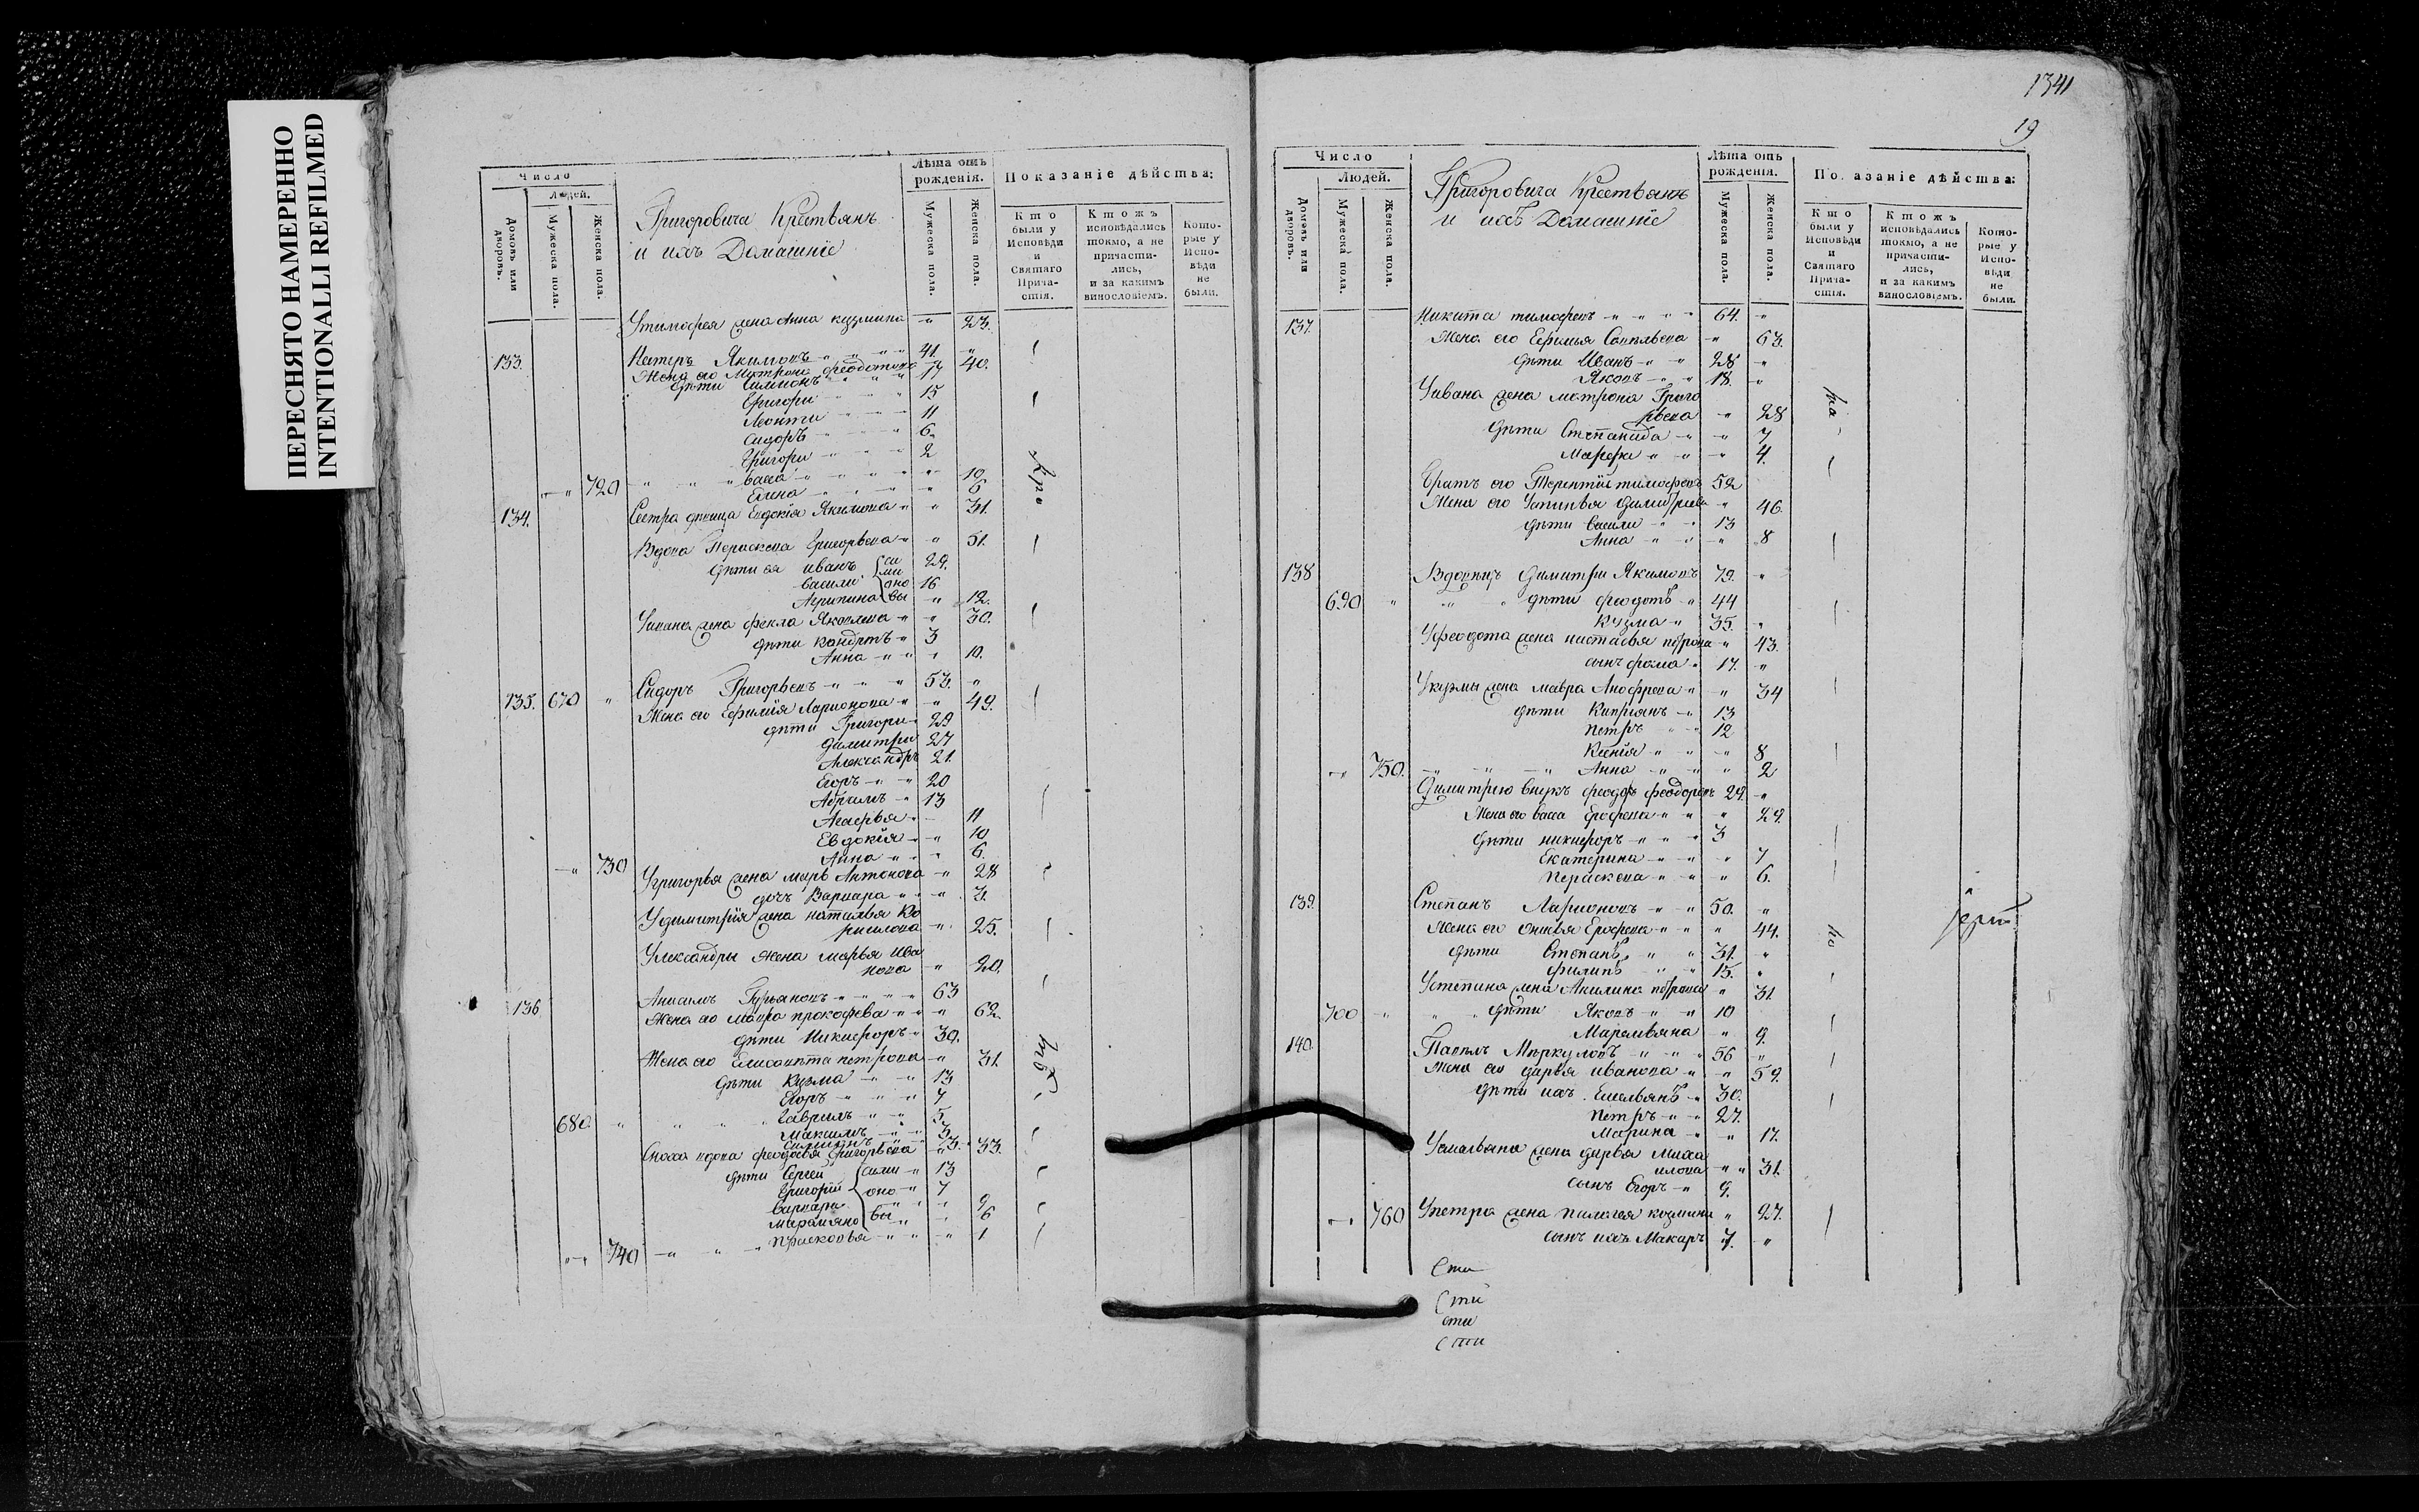 ПЕРЕСНЯТО НАМЕРЕННО
INTENTIONALLI REFILMED
Число
Людей.
Домовъ или дворовъ.
Мужеска пола.
Женска пола.
Григоровича Крестьянъ
и ихъ Домашніе
Лѣта отъ рожденія.
Мужеска пола.
Женска пола.
Показаніе дѣйства:
Кто были у Исповѣди и Святаго Прича-стія.
Ктожъ исповѣдались токмо, а не причасти-лись, и за какимъ винословіемъ.
Кото-рые у Испо-вѣди не были.
Утимофея жена Анна кузмина " 23.
133. Петръ Якимовъ " " " 41. "
Жена его Матрона феодотова " 40.
дѣти Симионъ " " " 17
Григори " " " 15
Леонти " " " 11
Сидоръ " " " 6
Григори " " " 2
" 720 " " " васса " " " " 10
Елена " " " " 6
134. Сестра девица Евдокія Якимова " " 31.
Вдова Пераскева Григорьева " " 51.
дѣти ея иванъ 29.
васили 16
Агрипина " 12.
Симионовы
Уивана жена фекла Яковлева " " 30.
дѣти кондратъ " 3
Анна " " " 10.
135. 670 " Сидоръ Григорьевъ " " " 53. "
Жена его Ефимія Ларионова " " 49.
дѣти Григори " 29
димитри 27
Александръ 21.
Егоръ " " 20
Абрамъ " 13
Агафья " " 11
Евдокія " " 10
Анна " " " 6.
" 730 Угригорья жена марь Антонова " 28
дочь Варвара " " " 3.
Удимитрія жена наталья Ки
рилова " 25.
Улександры жена марья Ива
нова " 20.
136 Анисимъ Гурьяновъ " " " " 63
Жена его мавра прокофева " " " 62.
дѣти Никифоръ " 30.
Жена его Елисавета петрова " 31.
дѣти Кузма " " 13
Егоръ " " " 7
680. " " " Гаврилъ " " 5
Максимъ " " 3
Симионъ " "
Сноха вдова феодосья Григорьева " 33.
дѣти Сергей 13
Григорій 7
варвара " 9
марамяна " " 6
Симионовы
" 740 " " " прасковья " " " 1
1341
19
Число
Людей.
Домовъ или дворовъ.
Мужеска пола.
Женска пола.
Григоровича Крестьянъ
и ихъ Домашніе
Лѣта отъ рожденія.
Мужеска пола.
Женска пола.
По. азаніе дѣйства:
Кто были у Исповѣди и Святаго Прича-стія.
Ктожъ исповѣдались токмо, а не причасти-лись, и за какимъ винословіемъ.
Кото-рые у Испо-вѣди не были.
137. Никита тимофевъ " " " " 64. "
Жена его Ефимья Савельева " 63.
дѣти Иванъ " " 28 "
Яковъ " " 18. "
Уивана жена матрона Григо
рьева " 28
дѣти Степанида " " 7
Марфа " " " 4.
Братъ его Терентій тимофевъ 52
Жена его Устинья димитриева " 46.
дѣти васили " " 13
Анна " " " " 8
138 Вдовецъ Димитри Якимовъ 79. "
690 " " " дѣти феодотъ " 44
Кузма " 35. "
Уфеодота жена настасья петрова " 43.
сынъ фома " 17. "
Укузмы жена мавра Анофрева " " 34
дѣти Киприянъ " 13
петръ " " 12
Ксенія " " " 8
" 750. " " " Анна " " " 2
Димитрию внукъ феодоръ феодоровъ 29. "
Жена его васса Ерофеева " " " 29.
дѣти никифоръ " " " 3
Екатерина " " " 7
пераскева " " " 6.
139. Степанъ Ларионовъ " " 50. "
Жена его Ерофеева " " " 44.
дѣти Степанъ " " 31. "
филипъ " " 15. "
Устепана жена Акилина петрова " 31
700 " " " дѣти Яковъ " " 10
Марамьяна " 9.
140. Павелъ Меркуловъ " " " 56 "
Жена его дарья иванова " " 59.
дѣти ихъ Емельянъ " 30.
петръ " " 27.
Марина " " 17.
Уемельяна жена дарья Миха
илова " " 31.
сынъ Егоръ " 9.
" 760 Упетра жена пилагея козмина " 27.
сынъ ихъ Макаръ 7. "
Сти
Сти
сти
Сти